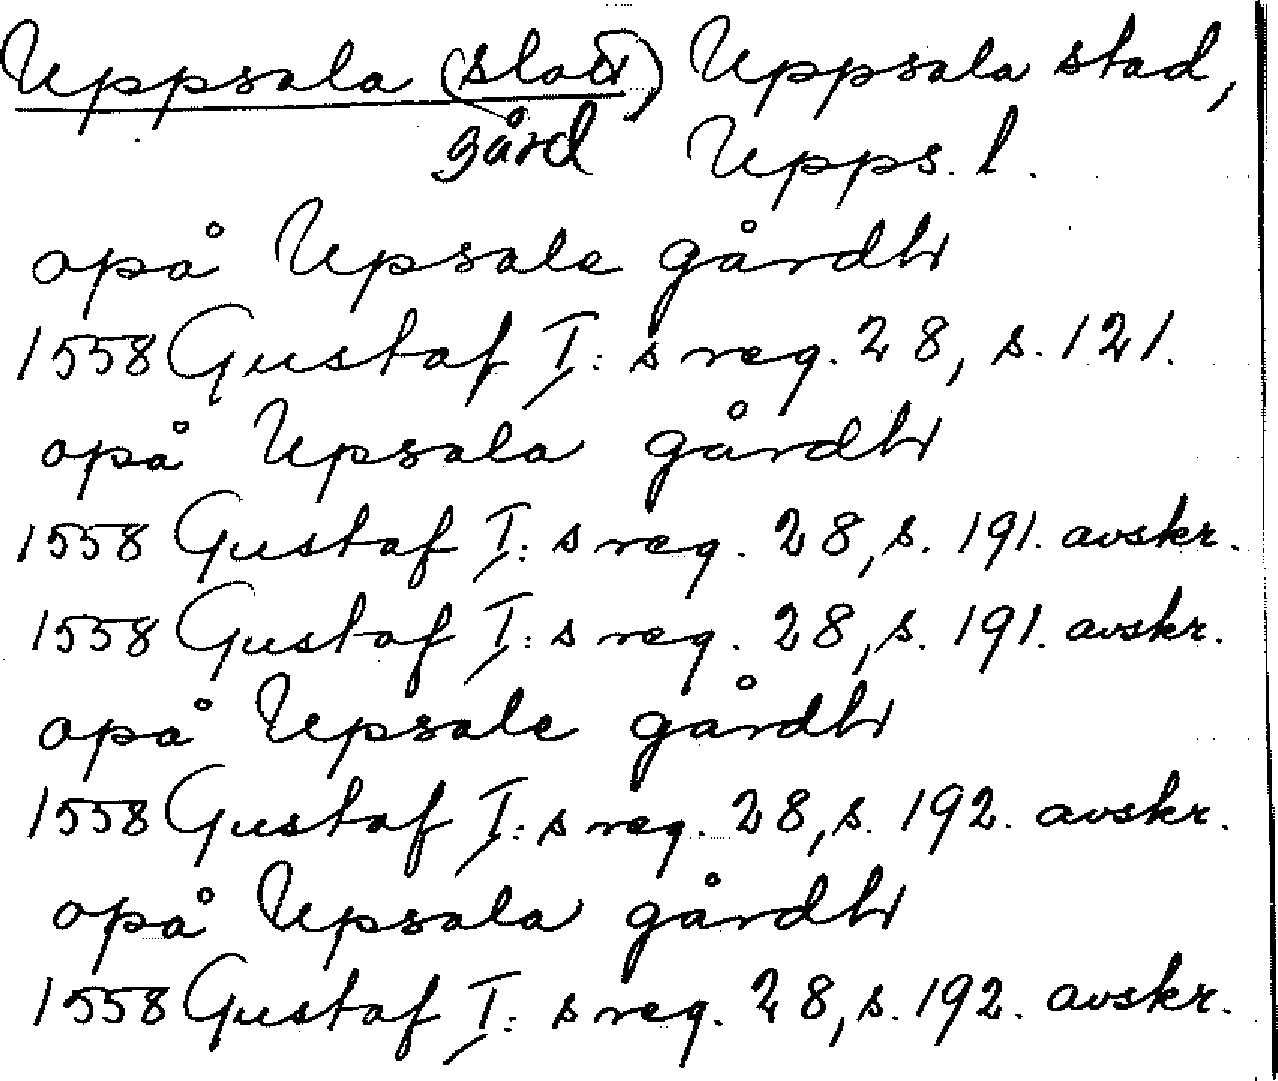 Uppsala (slott) Uppsala stad,
gård Upps. l.
opå Upsale gårdh
1558 Gustaf I:s reg. 28, s. 121.
opå Upsala gårdh
1558 Gustaf I:s reg. 28, s. 191. avskr.
1558 Gustaf I:s reg. 28, s. 191. avskr.
opå Upsale gårdh
1558 Gustaf I:s reg. 28, s. 192. avskr.
opå Upsala gårdh
1558 Gustaf I:s reg. 28, s. 192. avskr.